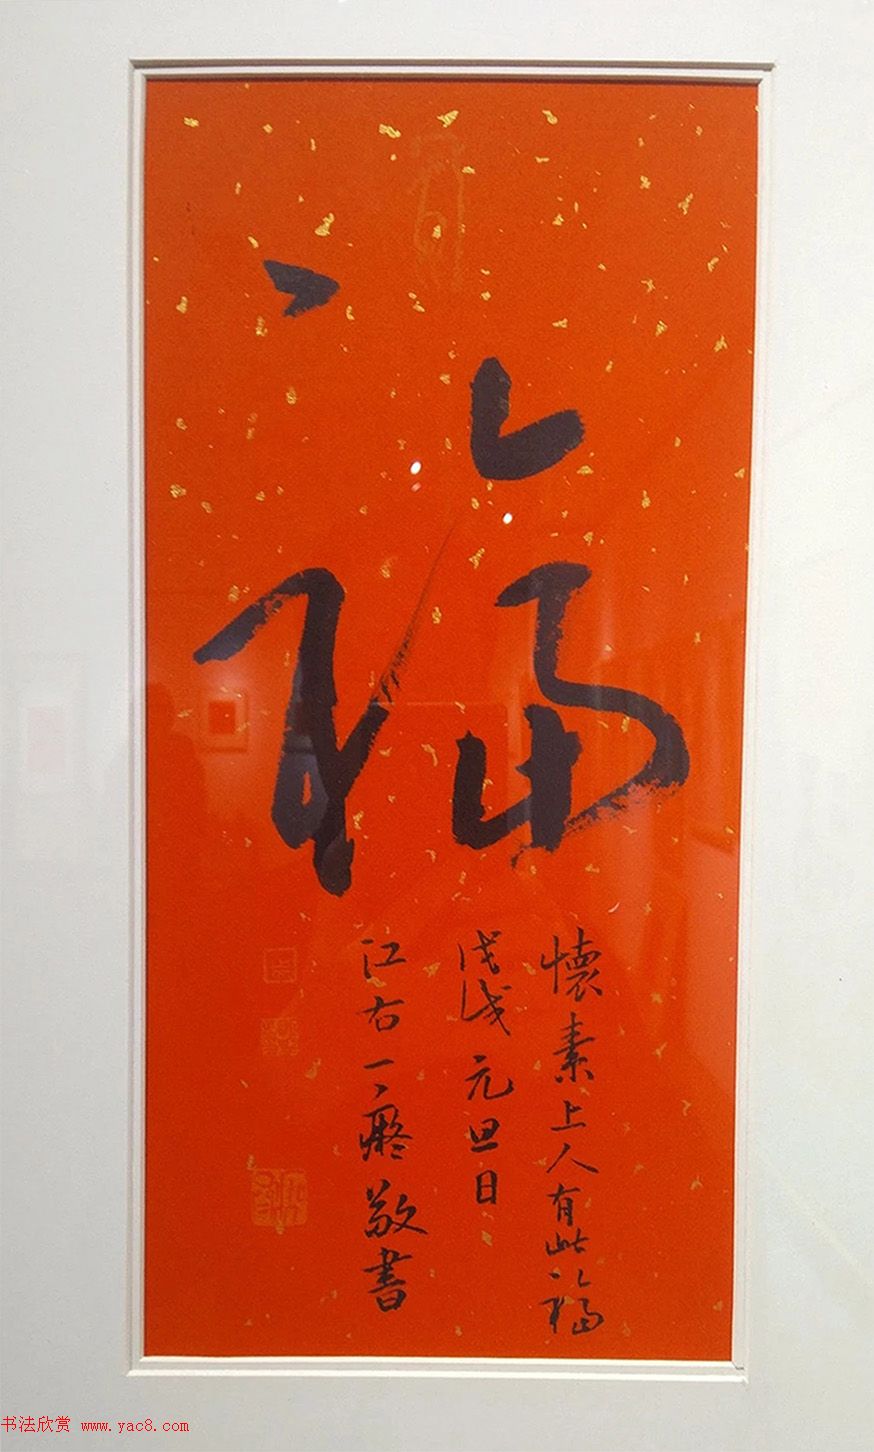 福
懷素上人有此福
戊戌元旦日
江右一癡敬書
书法欣赏 www.yac8.com